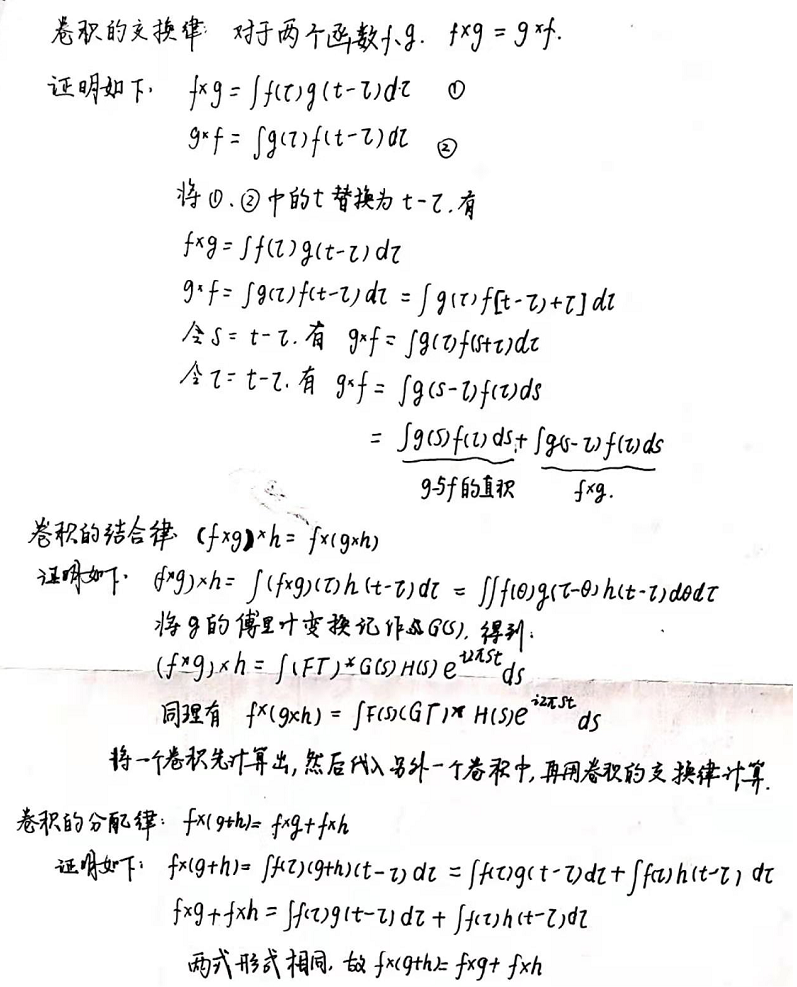 卷积的交换律: 对于两个函数f、g. f*g = g*f.
证明如下: f*g = ∫f(τ)g(t-τ)dτ ①
g*f = ∫g(τ)f(t-τ)dτ ②
将①、②中的t替换为t-τ.有
f*g = ∫f(τ)g(t-τ)dτ
g*f = ∫g(τ)f(t-τ)dτ = ∫g(τ)f[t-τ)+τ]dτ
令S = t-τ.有 g*f = ∫g(τ)f(S+τ)dτ
令τ = t-τ.有 g*f = ∫g(s-τ)f(τ)ds
= ∫g(s)f(τ)ds + ∫g(s-τ)f(τ)ds
g与f的直积 f*g.
卷积的结合律 (f*g)*h = f*(g*h)
证明如下: (f*g)*h = ∫(f*g)(τ)h(t-τ)dτ = ∫∫f(θ)g(τ-θ)h(t-τ)dθdτ
将g的傅里叶变换记作G(s), 得到:
(f*g)*h = ∫(FT)*G(s)H(s)e^{i2πst}ds
同理有 f*(g*h) = ∫F(s)(GT)* H(s)e^{i2πst}ds
将一个卷积先计算出,然后代入另外一个卷积中,再用卷积的交换律计算.
卷积的分配律: f*(g+h)= f*g+f*h
证明如下: f*(g+h)= ∫f(τ)(g+h)(t-τ)dτ = ∫f(τ)g(t-τ)dτ + ∫f(τ)h(t-τ)dτ
f*g+f*h = ∫f(τ)g(t-τ)dτ + ∫f(τ)h(t-τ)dτ
两式形式相同. 故f*(g+h)= f*g+ f*h